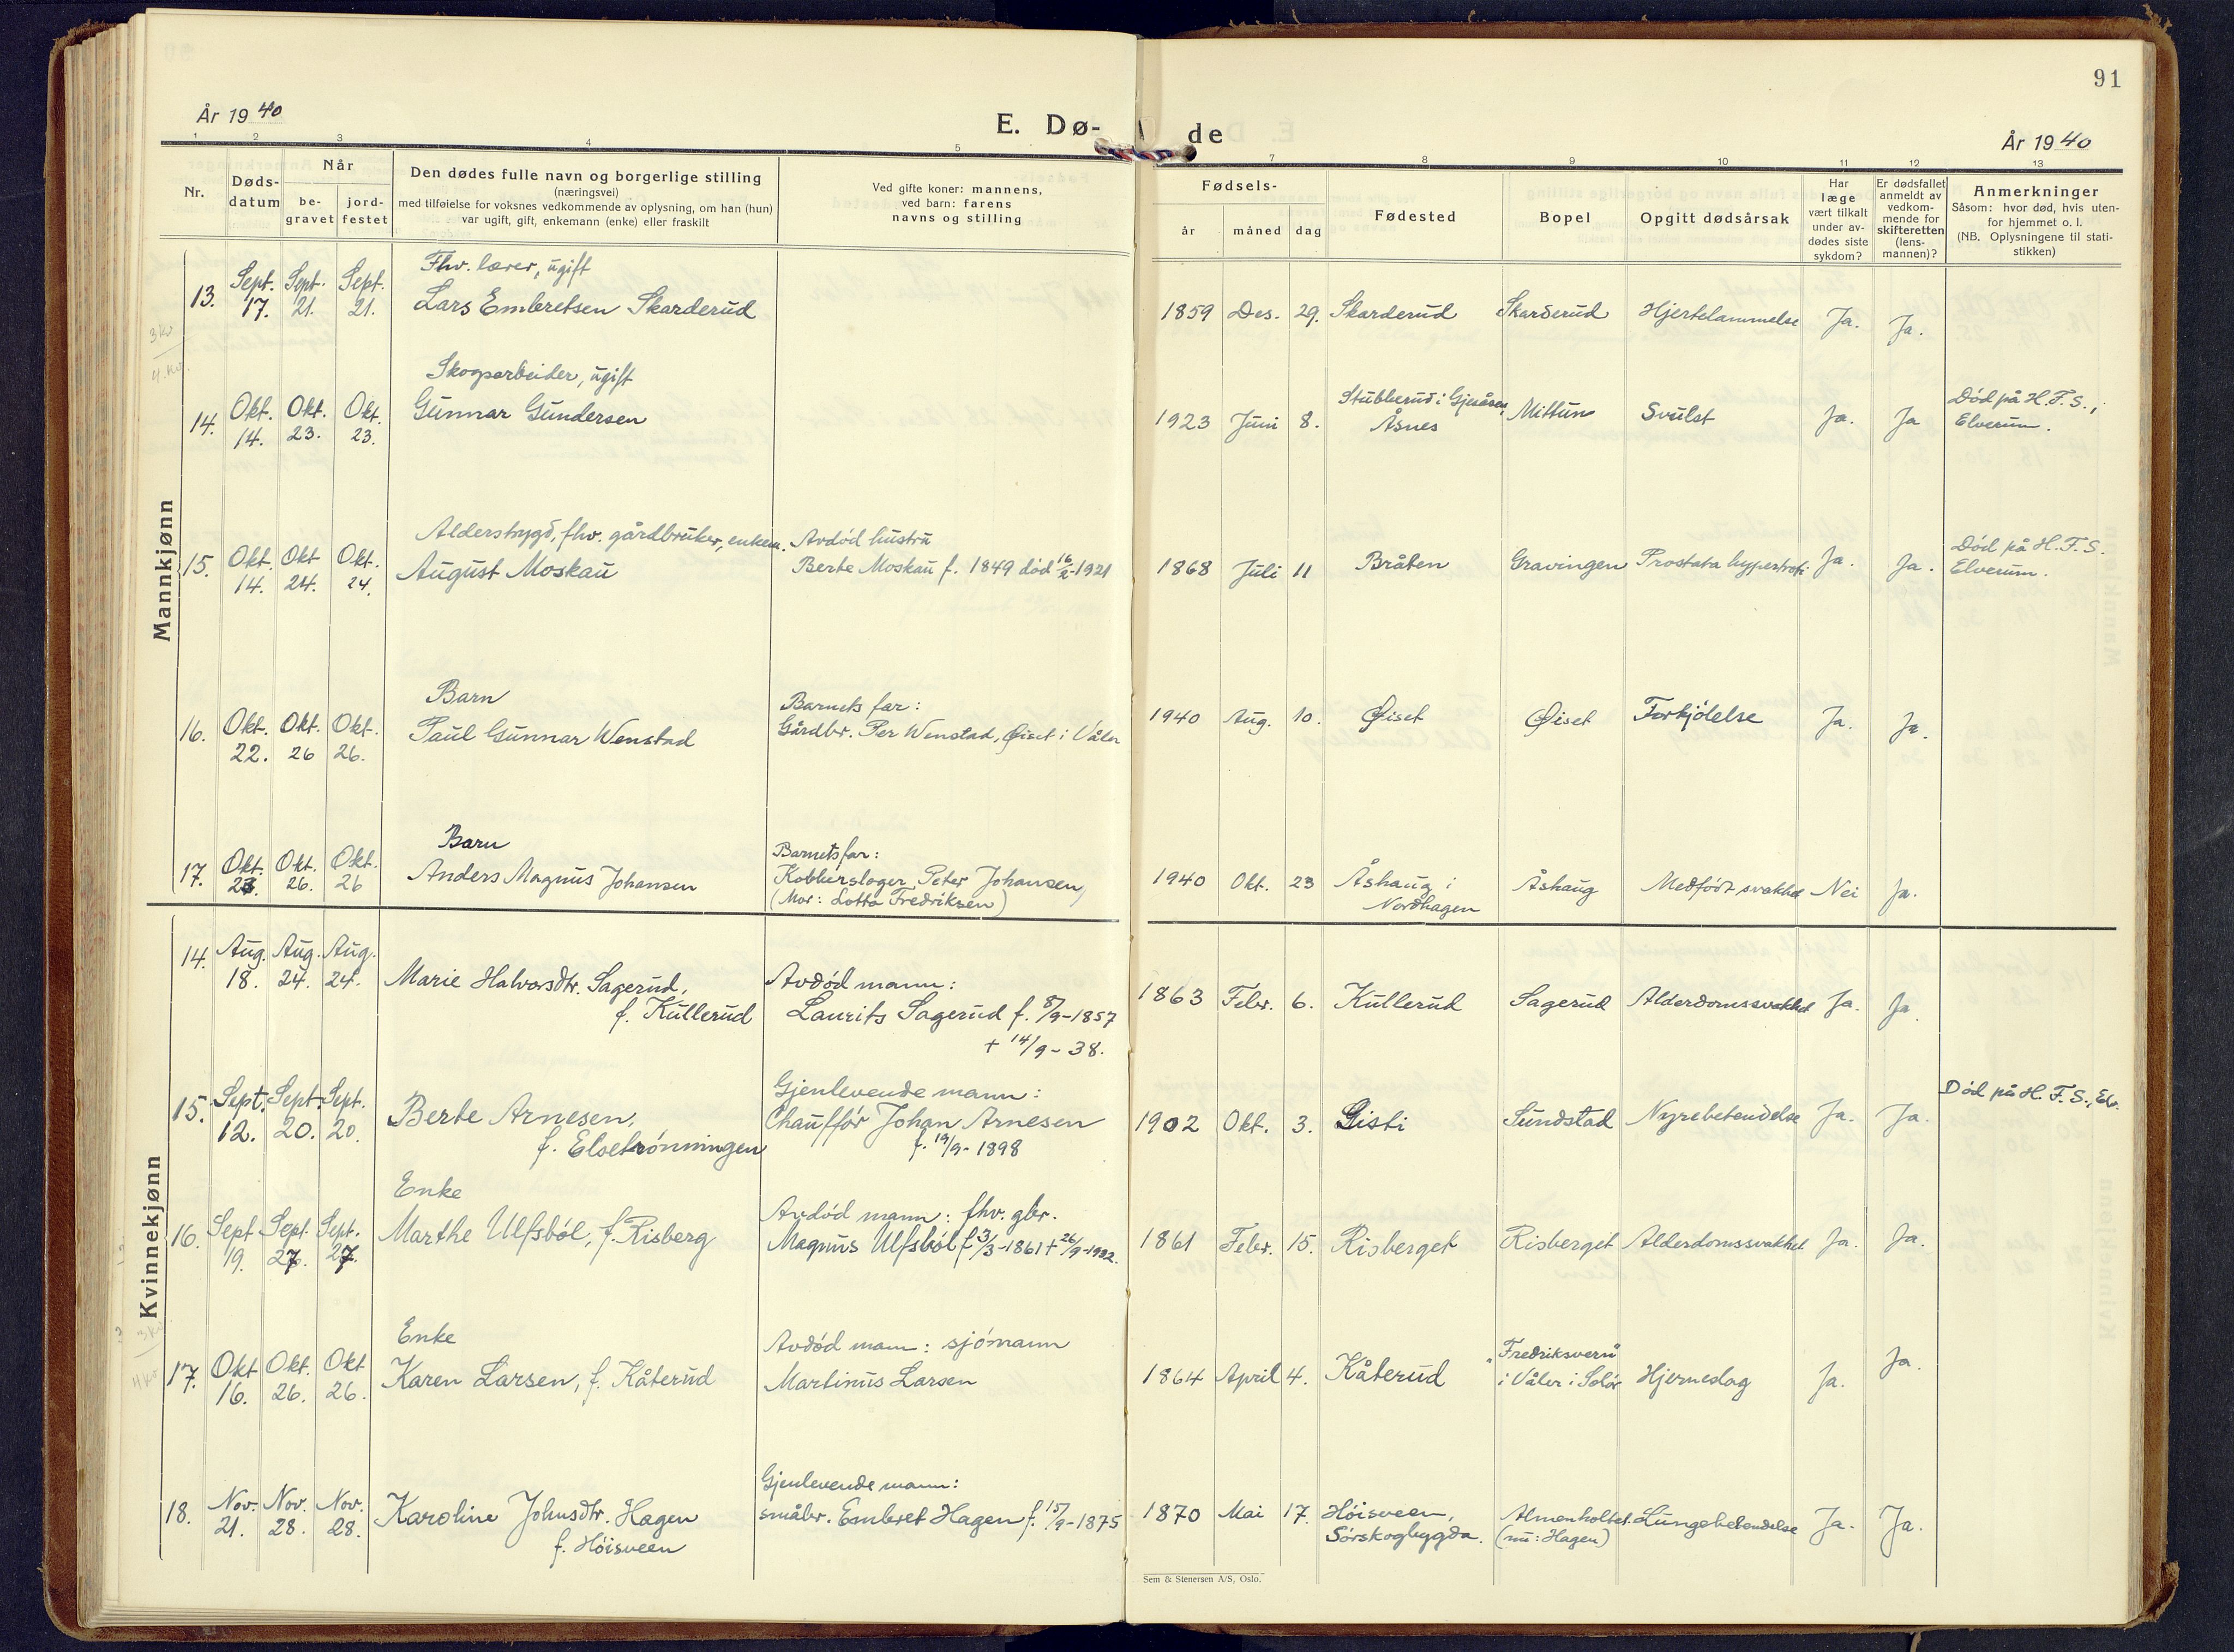 91
År 1940
E. Dø-
de
År 1940
1 2 3 4 5 7 8 9 10 11 12 13
Nr.
Døds-
datum
Når
be-
gravet
jord-
festet
Den dødes fulle navn og borgerlige stilling
(næringsvei)
med tilføielse for voksnes vedkommende av oplysning, om han (hun)
var ugift, gift, enkemann (enke) eller fraskilt
Ved gifte koner: mannens,
ved barn: farens
navns og stilling
Fødsels-
år måned dag
Fødested
Bopel
Opgitt dødsårsak
Har
læge
vært tilkalt
under av-
dødes siste
sykdom?
Er dødsfallet
anmeldt av
vedkom-
mende for
skifteretten
(lens-
mannen)?
Anmerkninger
Såsom: hvor død, hvis uten-
for hjemmet o. l.
(NB. Oplysningene til stati-
stikken)
Mannkjønn
Fhv. lærer, ugift
13. Sept. 17. Sept. 21. Sept. 21. Lars Embretsen Skarderud 1859 Des. 29. Skarderud Skarderud Hjertelammelse Ja. Ja.
3 kv
4. kv.
Skogsarbeider, ugift
14. Okt. 14. Okt. 23. Okt. 23. Gunnar Gundersen 1923 Juni 8. Stubberud i Gjesåsen,
Åsnes Mittun Svulst Ja. Ja Død på H.F.S.,
Elverum.
Alderstrygd, fhv. gårdbruker, enkem. Avdød hustru
15. Okt. 14. Okt 24. Okt. 24. August Moskau Berte Moskau f. 1849 død 16/2-1921 1868 Juli 11 Bråten Gravingen Prostata hypertrofi Ja. Ja. Død på H.F.S.
Elverum.
Barn Barnets far:
16. Okt. 22. Okt. 26 Okt. 26. Paul Gunnar Wenstad Gårdbr. Per Wenstad, Øiset i Våler 1940 Aug. 10. Øiset Øiset Forkjölelse Ja. Ja.
Barn Barnets far:
17. Okt. 23. Okt. 26. Okt. 26 Anders Magnus Johansen Kobberslager Peter Johansen,
(Mor: Lotta Fredriksen) 1940 Okt. 23 Åshaug i
Nordhagen Åshaug Medfödt svakhet Nei Ja.
Kvinnekjønn
14. Aug. 18. Aug. 24. Aug. 24. Marie Halvorsdtr. Sagerud,
f. Kullerud Avdöd mann:
Laurits Sagerud f. 8/9-1857
+ 14/9-38. 1863 Febr. 6. Kullerud Sagerud Alderdomssvakhet Ja. Ja
15. Sept. 12. Sept. 20. Sept. 20. Berte Arnesen,
f. Elsetrönningen Gjenlevende mann:
Chaufför Johan Arnesen
f. 19/9-1898 1902 Okt. 3. Gisti Sundstad Nyrebetendelse Ja. Ja. Död på H.F.S., Elv.
Enke Avdöd mann: fhv. gbr.
16. Sept 19. Sept. 27. Sept. 27. Marthe Ulfsböl, f. Risberg Magnus Ulfsböl f. 3/3-1861 + 26/9-1922. 1861 Febr. 15. Risberget Risberget Alderdomssvakhet Ja. Ja.
Enke Avdöd mann: sjömann
17. Okt 16. Okt. 26. Okt 26. Karen Larsen, f. Kåterud Martinus Larsen 1864 April 4. Kåterud "Fredriksvern"
i Våler i Solör Hjerneslag Ja. Ja.
4 kv
18. Nov. 21. Nov. 28. Nov. 28. Karoline Johnsdtr. Hagen
f. Höisveen Gjenlevende mann:
småbr. Embret Hagen f. 15/9-1875 1870 Mai 17. Höisveen,
Sörskogbygda. Almenholtet.
(nu: Hagen) Lungebetendelse Ja. Ja.
Sem & Stenersen A/S, Oslo.